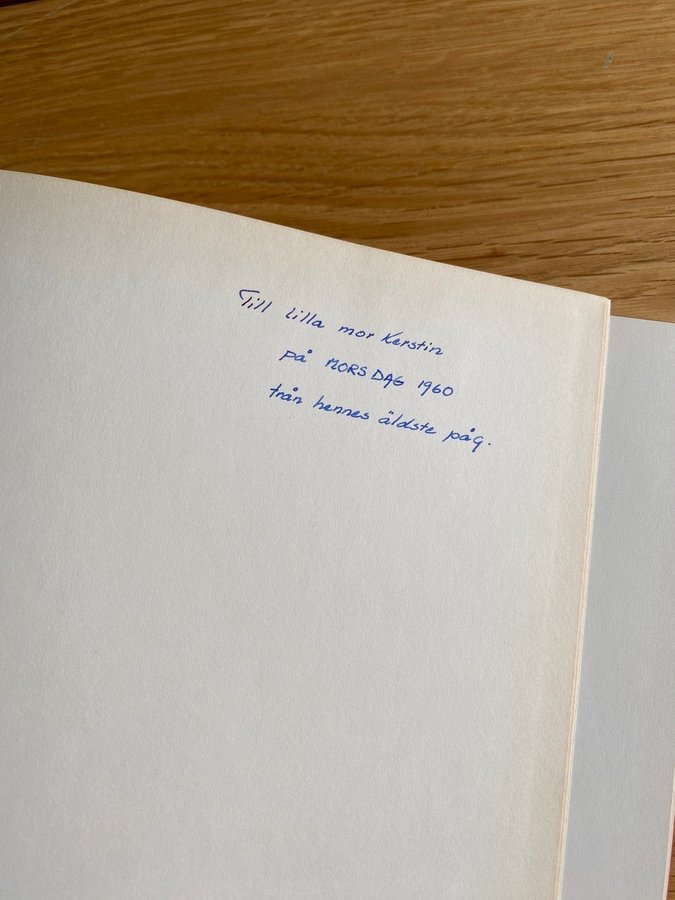 Till lilla mor Kerstin
på MORS DAG 1960
från hennes äldste påg.